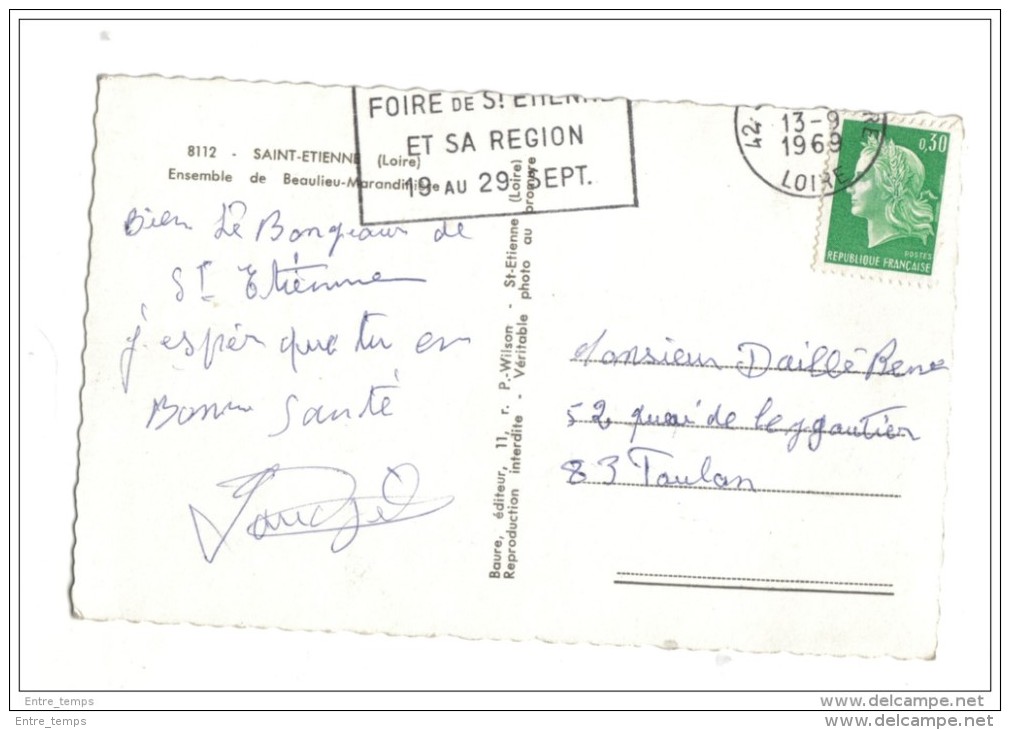 FOIRE DE St ETIENNE
ET SA REGION
19 AU 29 SEPT.
42
13-9
1969
RE
LOIRE
0,30
POSTES
REPUBLIQUE FRANÇAISE
8112 - SAINT-ETIENNE (Loire)
Ensemble de Beaulieu-Marandinière
Bien Le Bongeaur de
St Etienne
j'espér que tu en
Bonne Santé
Baure, éditeur, 11, r. P.-Wilson - St-Etienne (Loire)
Reproduction interdite - Véritable photo au bromure
Monsieur Daillé Rene
52 quai de
83 Toulon
Entre_temps
delcampe.net
Entre_temps
delcampe.net